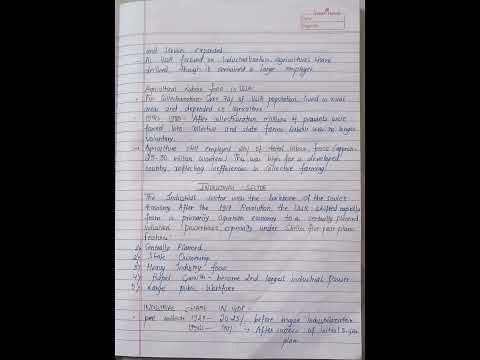 and service expanded
- As USSR focused on industrialisation, agricultures share
declined, though it remained a large employer.
Agricultural Labour force in USSR
- Pre Collectivisation- Over 70% of USSR population lived in rural
areas and depended on agriculture
- 1940s - 1980s- After collectivisation millions of peasants were
forced into collective and state farms. Labour was no longer
voluntary.
- Agriculture still employed 20% of total labour force (approx.
25-30 million workers). This was high for a developed
country, reflecting inefficiencies in collective farming.
INDUSTRIAL SECTOR
The Industrial sector was the backbone of the Soviet
Economy. After the 1917 Revolution, the USSR shifted rapidly
from a primarily agrarian economy to a centrally planned
industrial powerhouse especially under Stalin's five year plans.
Features:
1) Centrally Planned
2) State Ownership
3) Heavy Industry focus
4) Rapid Growth - became 2nd largest industrial power
5) Large Public Workforce
INDUSTRIAL SHARE IN GDP-
pre 1928 20-25% before major industrialisation
1940- 40% → After success of initial 5-year
plan